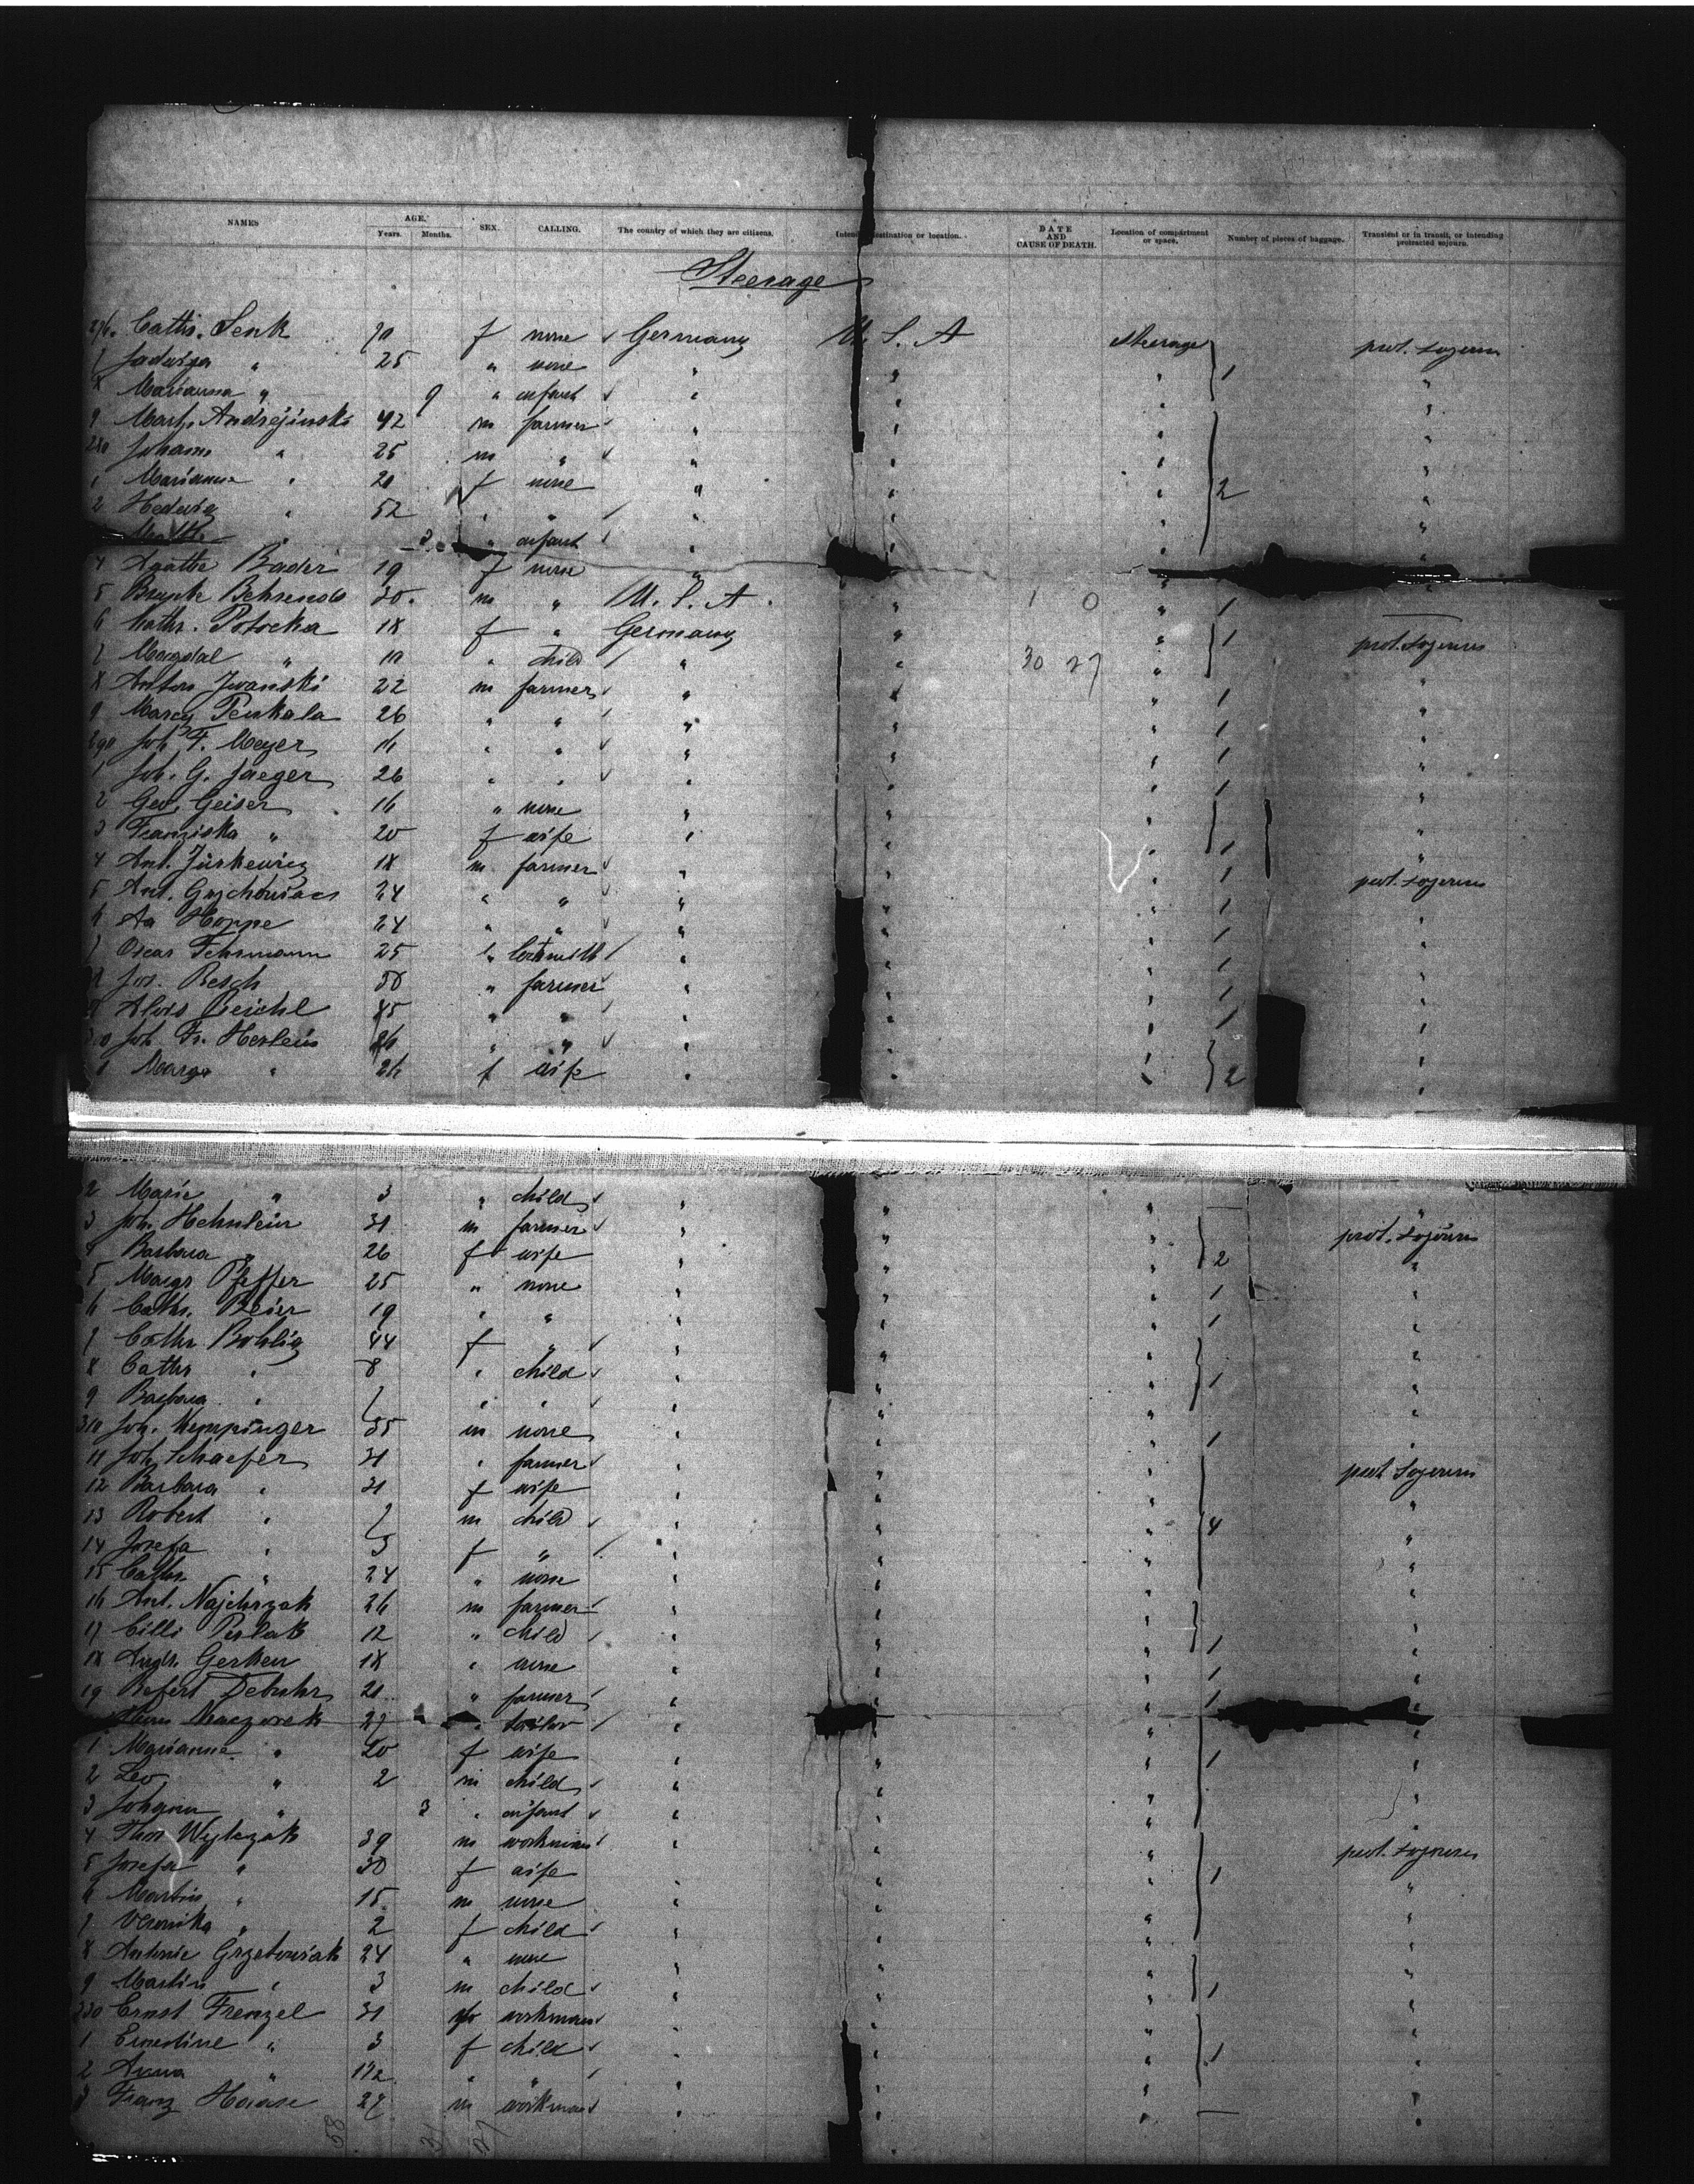 NAMES AGE. Years. Months. SEX. CALLING. The country of which they are citizens. Intend destination or location. DATE AND CAUSE OF DEATH. Location of compartment or space. Number of pieces of baggage. Transient or in transit, or intending protracted sojourn.
Steerage
Cath. Senk f none Germany U. S. A Steerage prot. sojourn
Jadwiga " 25 " none " " " 1 "
8 Marianna " 9 " infant " " " "
9 Mart. Andrejinski 42 m farmer " " " "
280 Johann " 25 m " " " " "
1 Marianna " 21 f none " " " 2 "
2 Hedwig " 52 " " " " " "
" infant " " " "
4 Agathe Bader 19 f none " "
5 Behrends 30 m " U. S. A. " 1 0 " 1
6 Cath. Potocka 18 f " Germany " " 1 prot. sojourn
7 Magdal " 10 " child " " 30 27 " "
8 Anton Iwanski 22 m farmer " " " 1 "
9 Penkala 26 " " " " " 1 "
290 Joh. F. Meyer 16 " " " " " 1 "
1 Joh. G. Jaeger 26 " " " " " 1 "
2 Geo. Geiser 16 " none " " " "
3 Franziska " 20 f wife " " " 1 "
4 Ant. Jurkewicz 18 m farmer " " " 1 prot. sojourn
5 Ant. 24 " " " " " 1 "
6 Hoppe 24 " " " " " 1 "
7 Oscar Fehrmann 25 " locksmith " " " 1 "
8 Jos. Resch 50 " farmer " " " 1 "
9 Alois Reichl 45 " " " " " 1 "
300 Joh. Fr. Herlein 26 " " " " " "
1 Marg. " 26 f wife " " " 2 "
2 Marie " 3 " child " " " "
3 Joh. Hehnlein 31 m farmer " " " prot. sojourn
4 Barbara " 26 f wife " " " 2 "
5 Margr Pfeffer 25 " none " " " 1 "
6 Cath. Beier 19 " " " " " 1 "
7 Cathr Bohlig 44 f " " " " "
8 Cathr " 8 " child " " " 1 "
9 Barbara " 7 " " " " " "
310 Joh. Kempinger 35 m none " " " 1 "
11 Joh. Schaefer 31 " farmer " " " prot. sojourn
12 Barbara " 31 f wife " " " "
13 Robert " 7 m child " " " 4 "
14 Josefa " 3 f " " " " "
15 Cathr. " 24 " none " " " "
16 Ant. Najchrzak 26 m farmer " " " "
17 Cilli 12 " child " " " 1 "
18 Gerken 18 " none " " " 1 "
19 Debuhr 21 " farmer " " " 1 "
27 " tailor " " " "
1 Marianna " 20 f wife " " " 1 "
2 Leo " 2 m child " " " "
3 Johann " 3 " infant " " " "
4 39 m workman " " " prot. sojourn
5 Josefa " 30 f wife " " " 1 "
6 Martin " 15 m none " " " "
7 Veronika " 2 f child " " " "
8 Antonie Grzetowiak 24 " none " " " "
9 Martin " 3 m child " " " 1 "
330 Ernst Frenzel 31 workman " " " "
1 Ernestine " 3 f child " " " 1 "
2 Anna " " " " " " "
3 Franz Haase 27 m workman " " " "
58 31 27